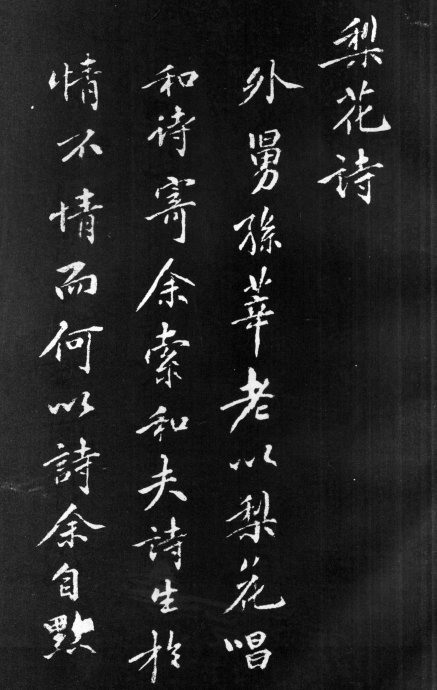 梨花詩
外舅孫莘老以梨花唱
和詩寄余索和夫詩生於
情不情而何以詩余自點